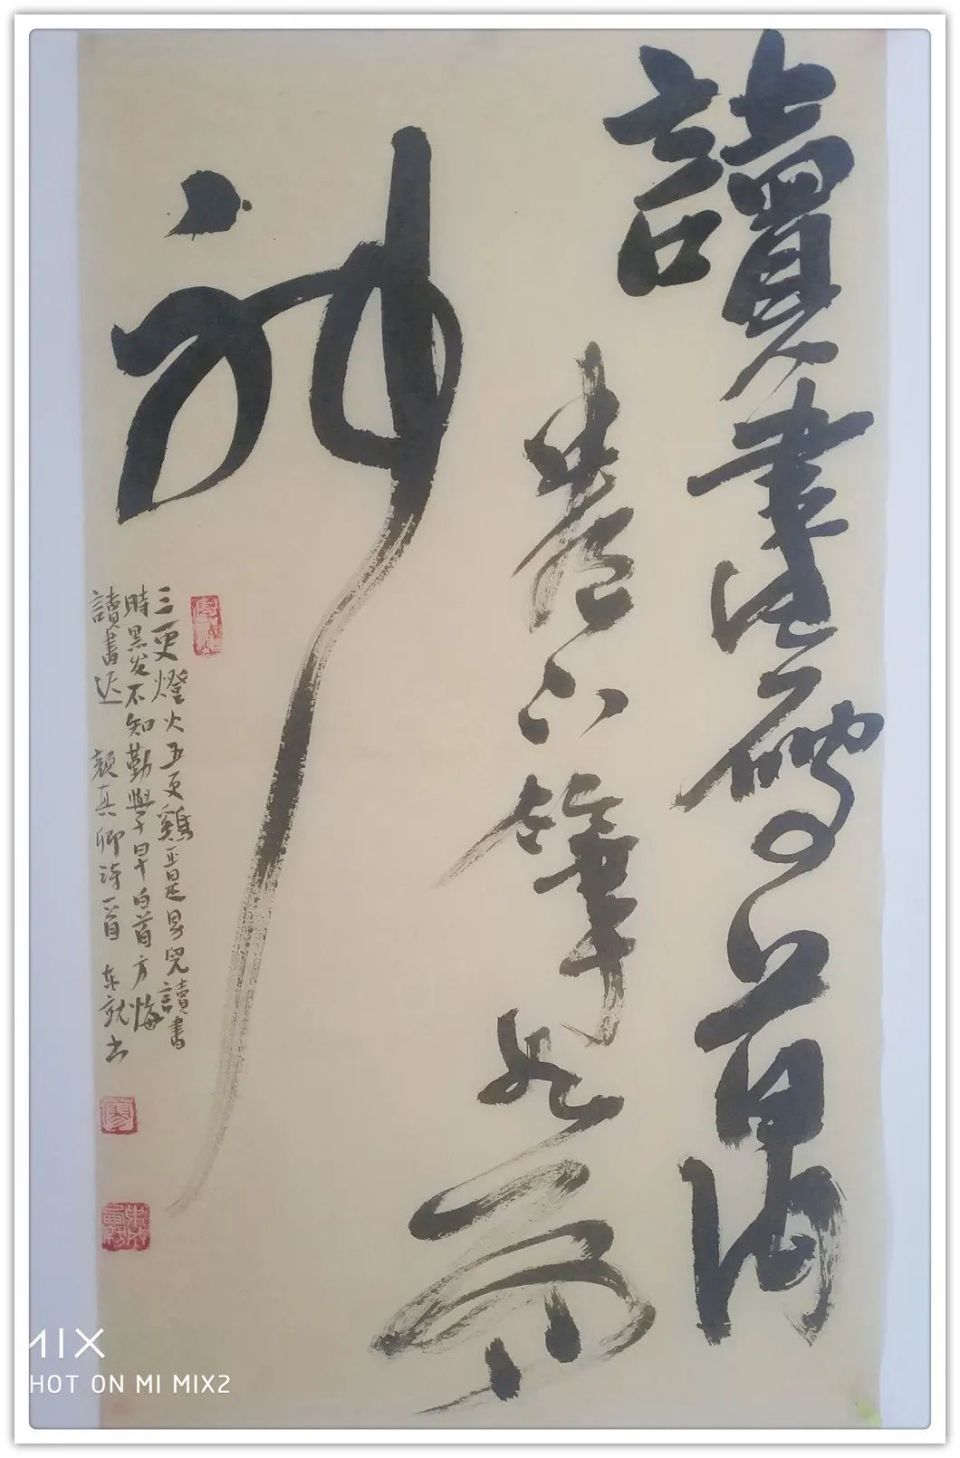 讀書破萬
卷下筆如有
神
三更燈火五更鷄正是男兒讀書
時黑发不知勤學早白首方悔
讀書迟 顏真卿诗一首 书
MIX
HOT ON MI MIX2